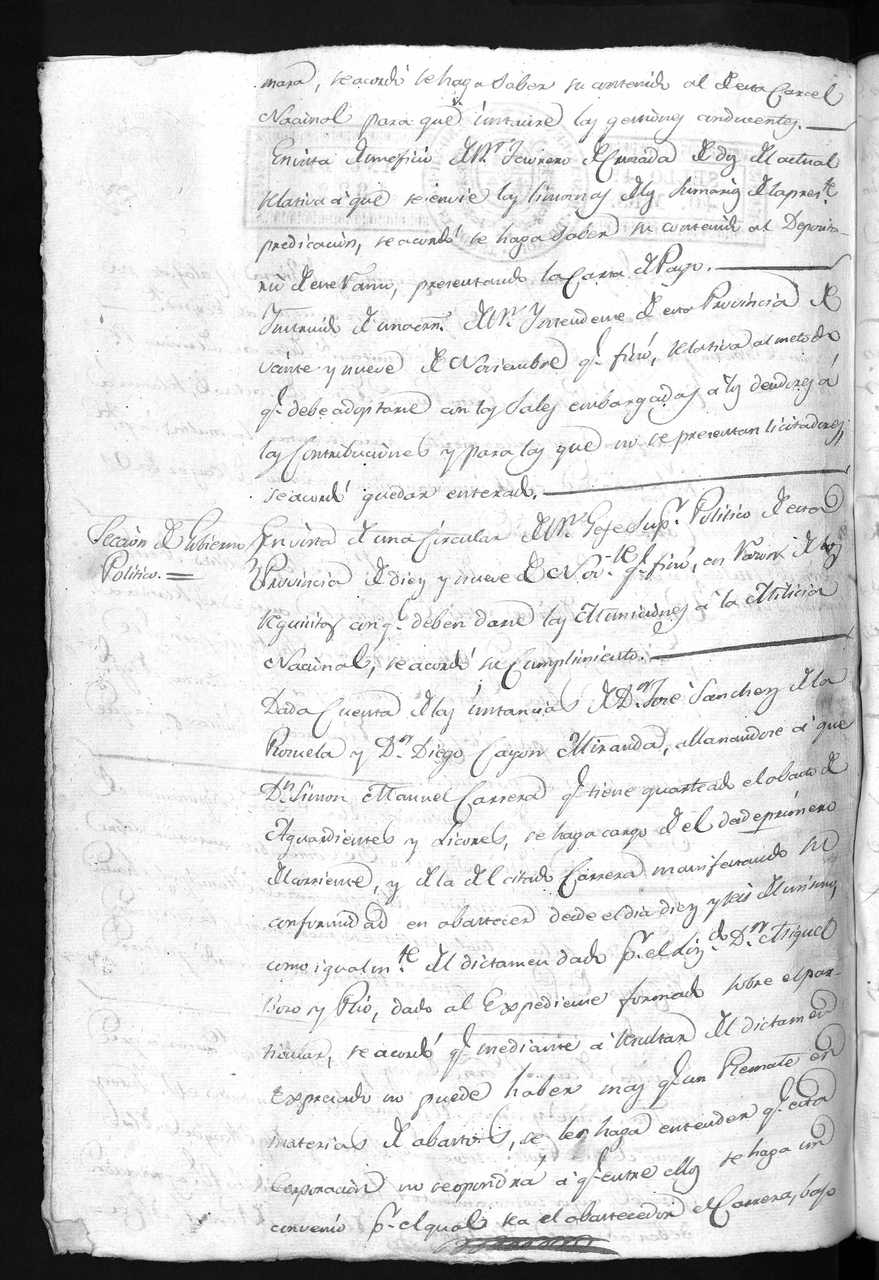 mara, se acordó se haga saber su contenido al de esta Carcel
Nacional para que instruire las gestiones conducentes.
En vista de un oficio del Sr. Tesorero de Cruzada de dos del actual
relativa a que se envie las limosnas de los Sumarios de la pres.te
predicación, se acordó se haga saber su contenido al Deposita-
rio de este ramo, presentando la Carta de Pago.
Instruido de una orn. del Sr. Yntendente de esta Provincia de
veinte y nueve de Noviembre q.e finó, relativa al metodo
q.e debe adoptarse con las Sales embargadas a los deudores á
las Contribuciones y para las que no se presentan licitadores,
se acordó quedar enterado.
Seccion de Gobierno
Politico.
En vista de una Circular del Sr. Gefe Sup.r Politico de esta
Provincia de diez y nueve de Nov.te q.e finó, en razon de los
requisitos con q.e deben darse las Municiones a la Milicia
Nacional, se acordó su Cumplimiento.
Dada Cuenta de las instancias de D.n José Sanchez de la
Rozuela y D.n Diego Cayon Miranda, allanandose a que
D.n Simon Manuel Carrera q.e tiene quarteado el abasto de
Aguardientes y Licores, se haga cargo de el desde primero
del corriente, y de la del citado Carrera manifestando su
conformidad en abastecer desde el dia diez y seis del mismo,
como igualm.te del dictamen dado p.r el Liz.do D.n Miguel
Bozo y Rio, dado al Expediente formado sobre el par-
ticular, se acordó q.e mediante á resultar del dictamen
expresado no puede haber mas q.e un Remate en
materias de abastos, se les haga entender q.e esta
Corporacion no se opondrá á q.e entre ellos se haga un
convenio p.r el qual sea el abastecedor el Carrera, bajo